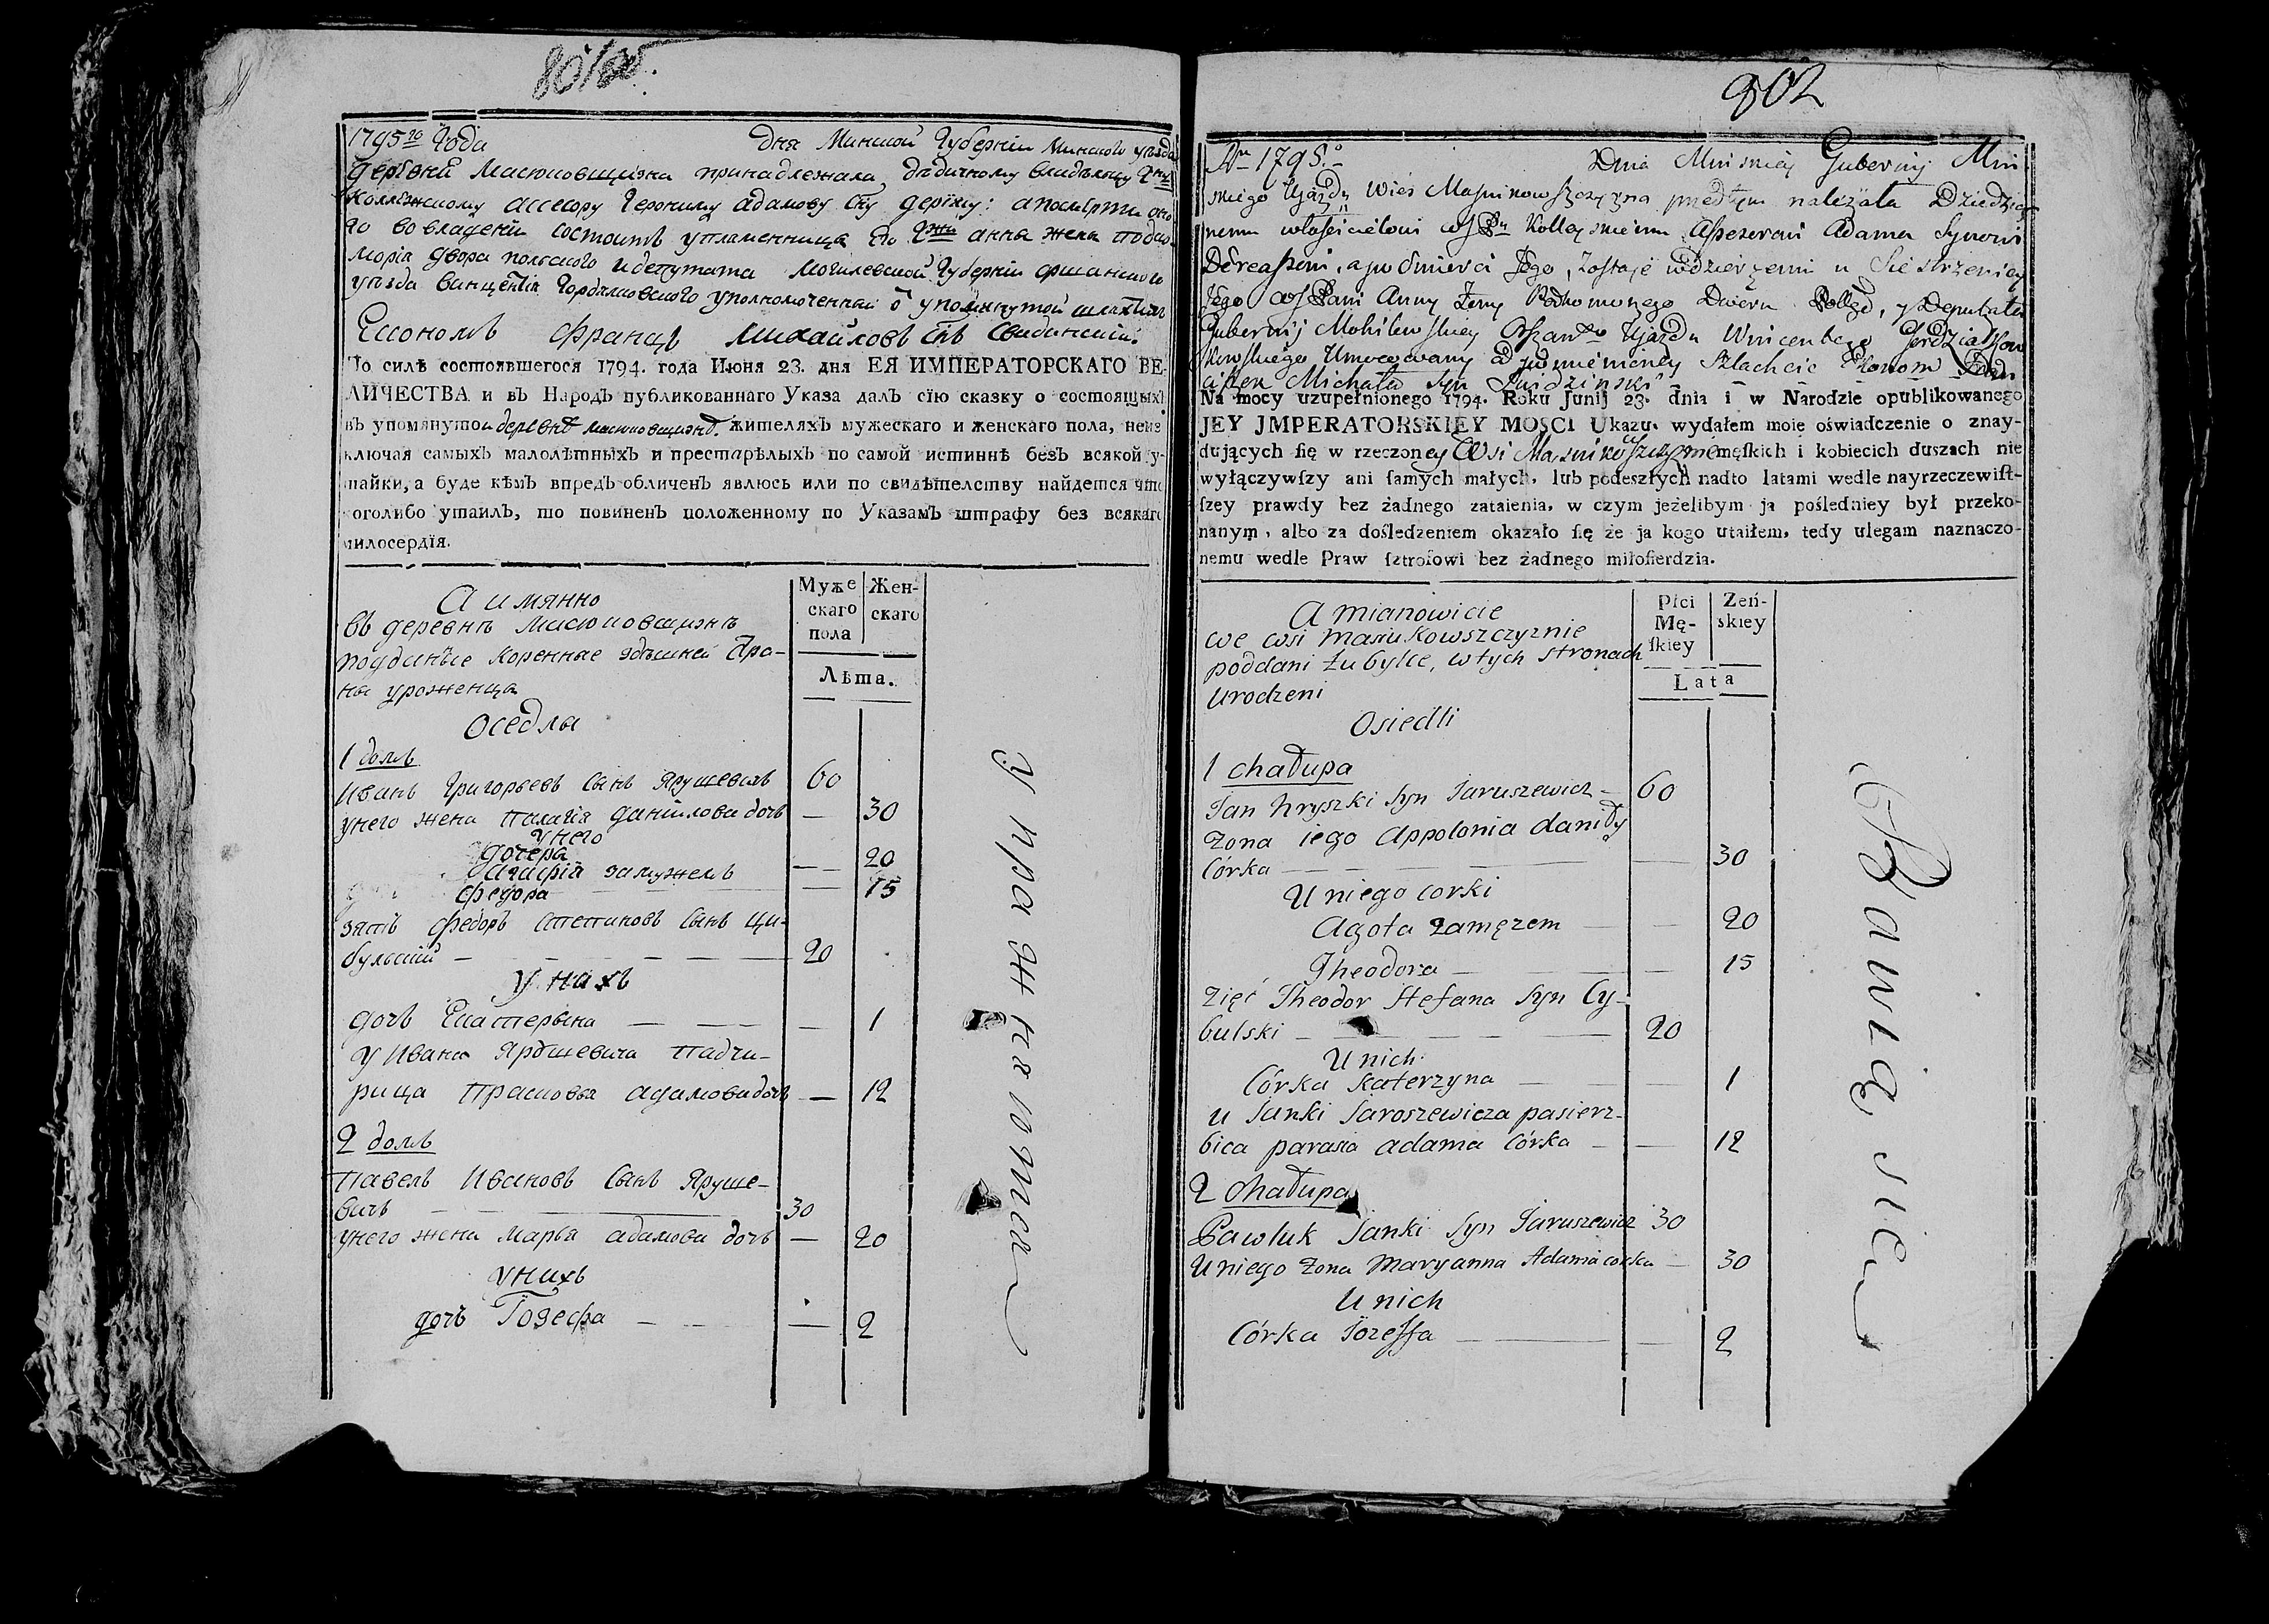 1795го Года дня Минской Губернїи Минского уѣзда
деревня Масюковщизна принадлежала дѣдичному владѣльцу
Коллежскому ассесору Герониму адамову сну апосмерти
го во владенїи состоитъ уплеменница его анна жена подко
морїя двора польского идепутата Могилевской Губернїи оршанского
уѣзда Винцентїя уполномоченный ѿ упомянутой шляхтичь
Економъ Францъ Михайловъ снъ Свидинский.
По силѣ состоявшегося 1794. года Июня 23. дня ЕЯ ИМПЕРАТОРСКАГО ВЕ-
ЛИЧЕСТВА и въ Народъ публикованнаго Указа далъ сїю сказку о состоящыхъ
въ упомянутой деревнѣ масюковщизнѣ. жителяхъ мужескаго и женскаго пола, неиз
ключая самыхъ малолѣтныхъ и престарѣлыхъ по самой истиннѣ безъ всякой у-
тайки, а буде кѣмъ впредъ обличенъ явлюсь или по свидѣтелству найдется что
коголибо утаилъ, то повиненъ положенному по Указамъ штрафу без всякаго
милосердїя.
А имянно
въ деревнѣ масюковщизнѣ
подданые коренные здѣшней стра-
ны уроженца
Муже
скаго
пола
Жен-
скаго
Лѣта.
оседлы
1 домъ
иванъ Григорьевъ сынъ Ярушевичъ 60
унего жена палагїя данилова дочь — 30
унего
дочера
агафїя замужемъ — 20
федора — 15
зять федоръ степановъ сынъ ци-
бульский — 20
у нихъ
дочь Екатерына — 1
у ивана Ярошевича падче-
рица прасковья адамова дочь — 12
2 домъ
павелъ ивановъ сынъ Яруше-
вичъ — 30
унего жена марья адамова дочь — 20
унихъ
дочь Їозефа — 2
902
1795. Dnia Minskiey Guberniy Min
skiego Ujazdu Wieś Masiukowszczyzna przedtym należała Dziedzicz
nemu włascicielowi Kolleyskiemu Assesorowi Adama Synowi
a po smierci Jego, zostaje w dzierzeniu u Siestrzenicy
Jego Pani Anny Zony Podkomorzego Dworu Polsgo, y Deputata
Guberniy Mohilewskiey Ujazdu Wincentego
Umocowany od pomienioney Szlachcic Ekonom
Michała Syn Swidzinski
Na mocy uzupełnionego 1794. Roku Junij 23. dnia i w Narodzie opublikowanego
JEY JMPERATORSKIEY MOSCI Ukazu, wydałem moie oświadczenie o znay-
dujących ſię w rzeczoney Wsi Masiukowszczyznie męſkich i kobiecich duszach nie
wyłączywſzy ani ſamych małych, lub podeszłych nadto latami wedle nayrzeczewiſt-
ſzey prawdy bez żadnego zataienia, w czym jeżelibym ja poſledniey był przeko-
nanym, albo za doſledzeniem okazało ſię że ja kogo utaiłem, tedy ulegam naznaczo-
nemu wedle Praw ſztrofowi bez żadnego miłoſierdzia.
A mianowicie
we wsi masiukowszczyznie
poddani tubylce, wtych stronach
urodzeni
Płci
Mę-
ſkiey
Zeń-
skiey
Lata
Osiedli
1 chałupa
Jan hryszki Syn Jaruszewicz — 60
Zona iego Appolonia daniły
Córka — 30
U niego corki
Agota zamęzem — 20
Theodora — 15
Zięć Theodor Stefana Syn Cy-
bulski — 20
U nich
Córka Katerzyna — 1
u Janki Jaroszewicza pasierz-
bica parasia adama Córka — 12
2 Chałupa
Pawluk Janki Syn Jaruszewicz 30
U niego Zona Maryanna Adama corka — 30
U nich
Córka Jozeffa — 2